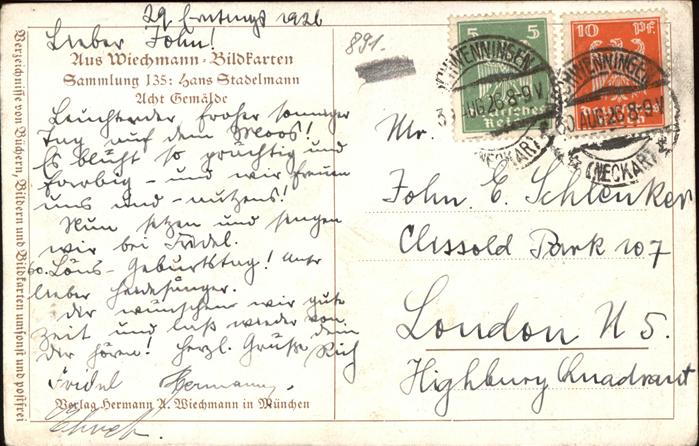 29. Erntings 1926
Lieber John!
Aus Wiechmann-Bildkarten
Sammlung 135: Hans Stadelmann
Acht Gemälde
Leuchtender, froher sonniger
Tag auf dem Moos!
Es blüht so prächtig und
farbig – und wir freuen
uns und – nutzens!
Nun sitzen und singen
wir bei Friedel.
60. Löns-Geburtstag! Unser
lieber Heidesänger.
Dir wünschen wir gute
Zeit und laß wieder von
Dir hören! Herzl. Grüße dem
Friedel Hermann.
Verlag Hermann A. Wiechmann in München
Verzeichnisse von Büchern, Bildern und Bildkarten umsonst und postfrei
891.
5 5
Deutsches Reich
10 Pf.
SCHWENNINGEN
30 AUG 26 8-9 V
(NECKAR)
SCHWENNINGEN
30 AUG 26 8-9 V
(NECKAR)
Mr.
John E. Schlenker
Clissold Park 107
London N 5.
Highbury Quadrant